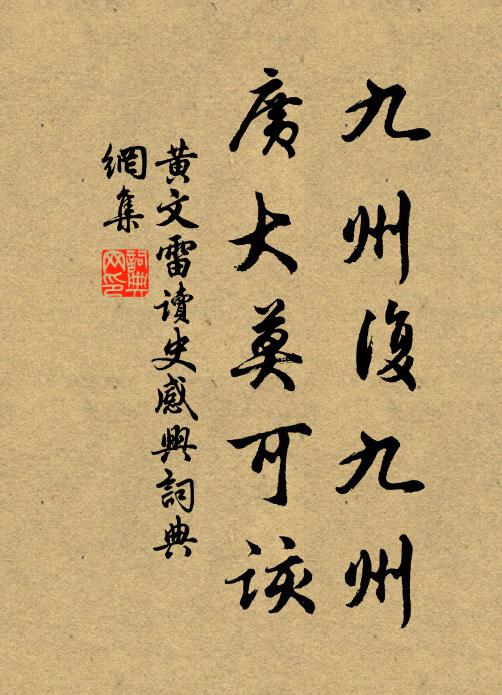 九州復九州
廣大莫可談
黃文雷讀史感興詞典
網集
詞典
网印